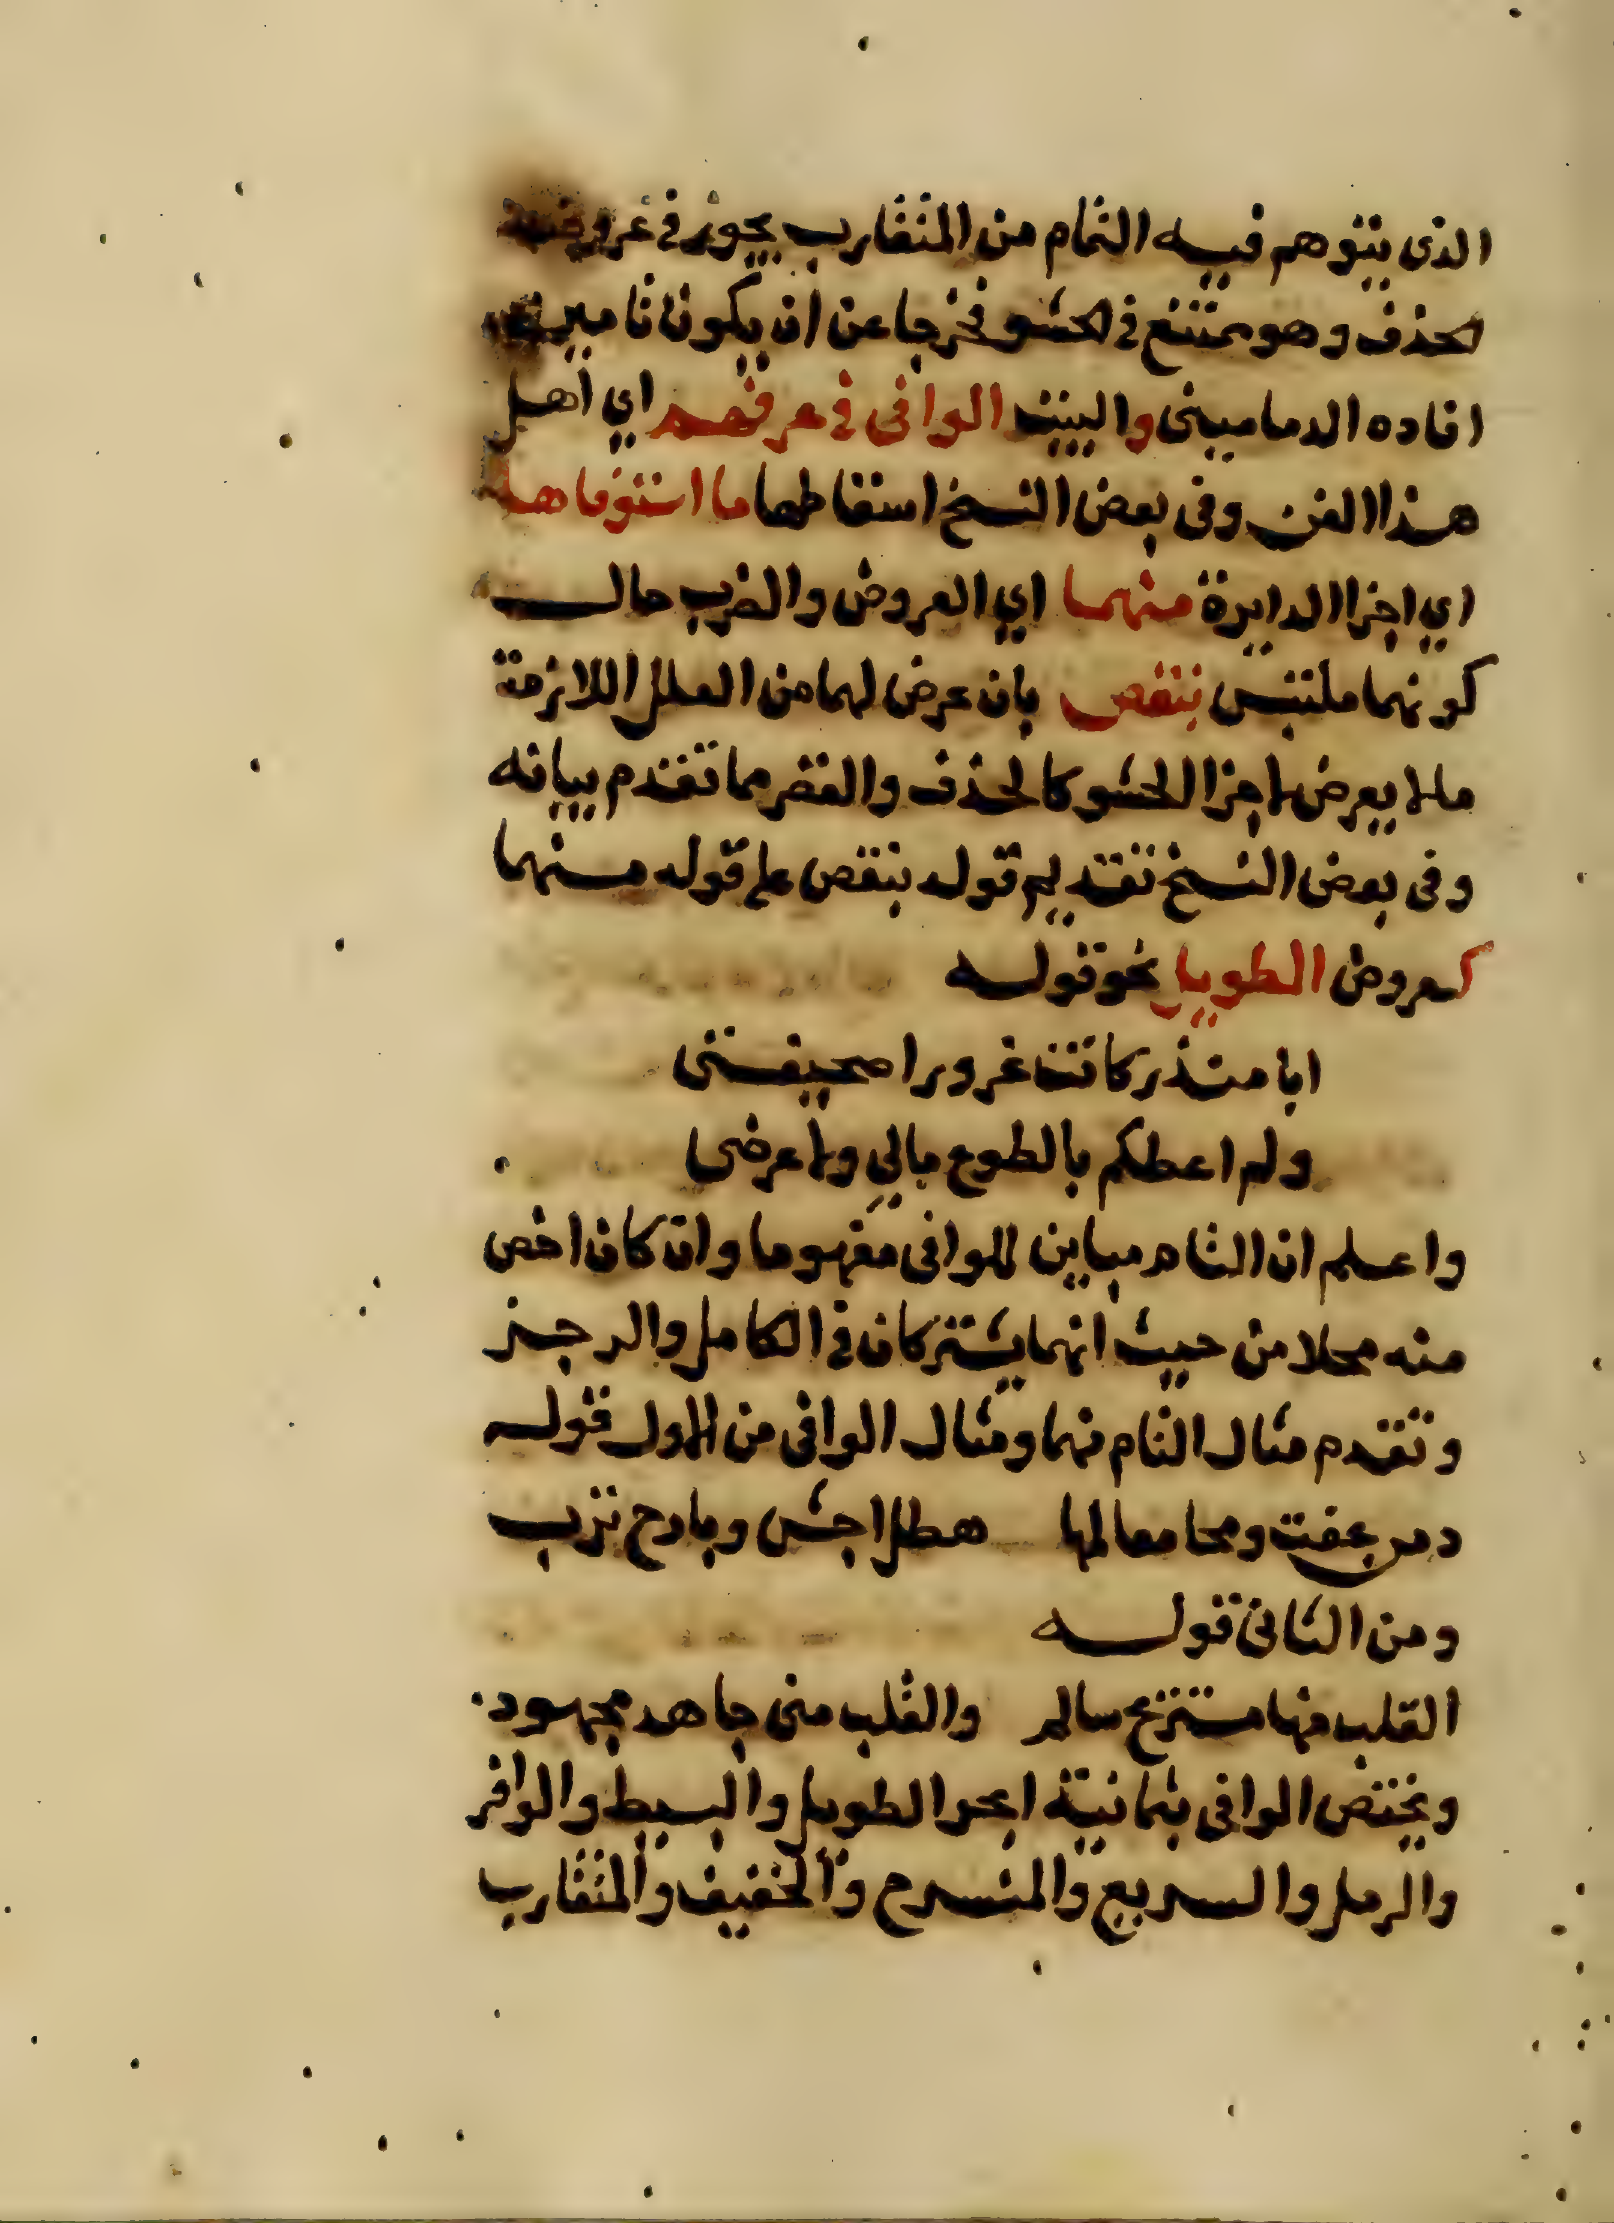 الذى يتوهم فيه التمام من المتقارب يجوز فى عروضه
الحذف وهو ممتنع فى الحشو فخرجا عن ان يكونا تامين
افاده الدمامينى والبيت الوافى فى عرفهم اي اهل
هذا الفن وفى بعض النسخ اسقاطها ما استوفاها
اي اجزا الدايرة منهما اي العروض والضرب حالــ
كونهما ملتبس بنقص بان عرض لهما من العلل اللازمة
ما لا يعرض لاجزا الحشو كالحذف والقصر مما تقدم بيانه
وفى بعض النسخ تقديم قوله بنقص على قوله منهما
كعروض الطويل نحو قوله
ابا منذر كانت غرورا صحيفتى
ولم اعطكم بالطوع مالي ولا عرضى
واعلم ان التام مباين للوافى مفهوما وان كان اخص
منه محلا من حيث انهما يشتركان فى الكامل والرجز
وتقدم مثال التام منهما ومثال الوافى من الاول قوله
دمن عفت ومحا معالمها هطل اجش وبارح ترب
ومن الثانى قوله
القلب منها مستريح سالم والقلب منى جاهد مجهود
ويختص الوافى بثمانية ابحر الطويل والبسيط والوافر
والرمل والسريع والمنسرح والخفيف والمتقارب